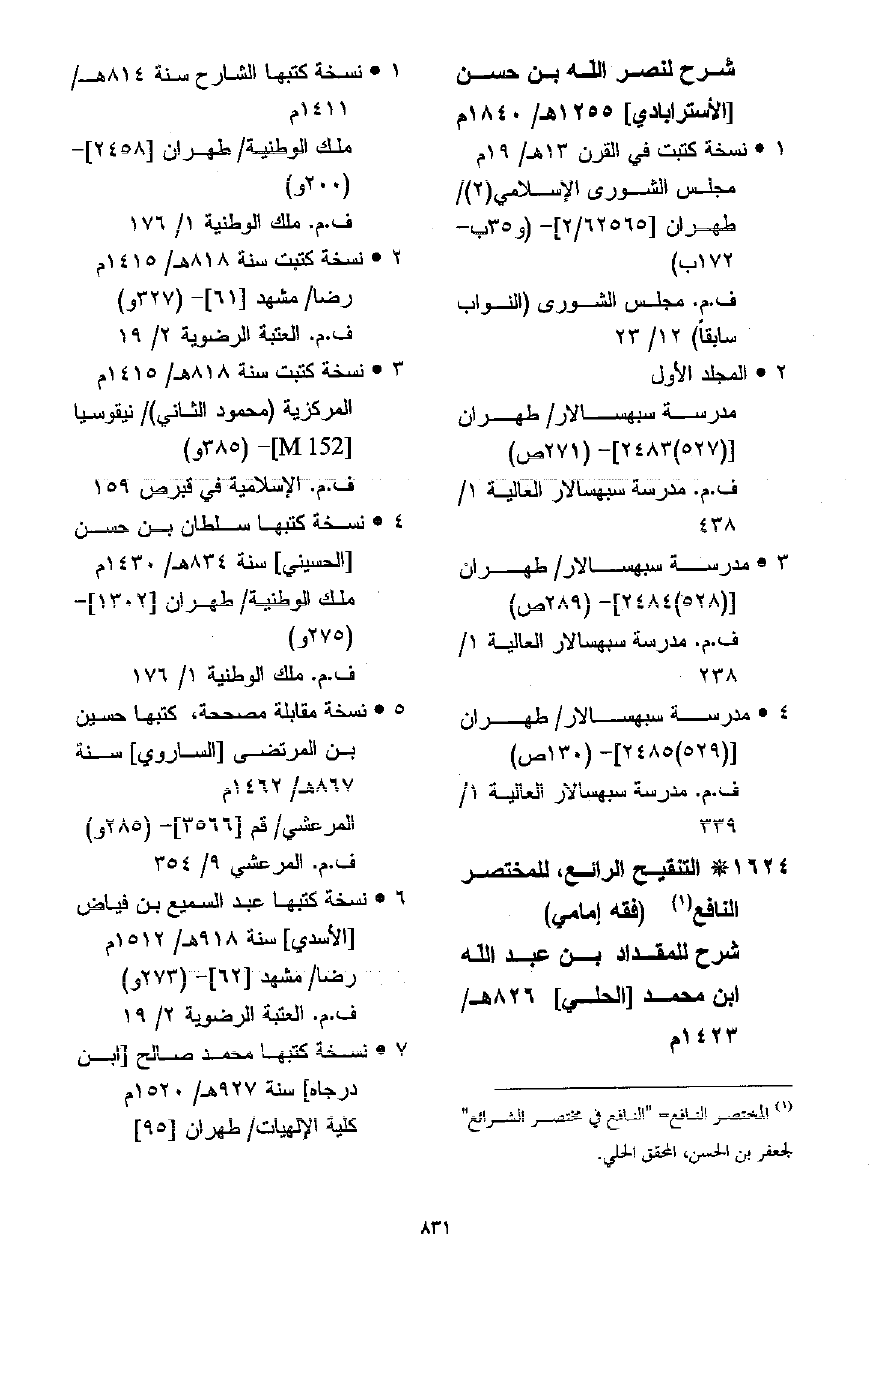 شرح لنصر الله بن حسن
[الأسترابادي] ١٢٥٥هـ/ ١٨٤٠م
١ • نسخة كتبت في القرن ١٣هـ/ ١٩م
مجلس الشورى الإسلامي(٢)/
طهران [٢/٦٢٥٦٥]- (و٣٥ب-
١٧٢ب)
ف.م. مجلس الشورى (النواب
سابقاً) ١٢/ ٢٣
٢ • المجلد الأول
مدرسة سبهسالار/ طهران
[(٥٢٧)٢٤٨٣]- (٢٧١ص)
ف.م. مدرسة سبهسالار العالية ١/
٤٣٨
٣ • مدرسة سبهسالار/ طهران
[(٥٢٨)٢٤٨٤]- (٢٨٩ص)
ف.م. مدرسة سبهسالار العالية ١/
٢٣٨
٤ • مدرسة سبهسالار/ طهران
[(٥٢٩)٢٤٨٥]- (١٣٠ص)
ف.م. مدرسة سبهسالار العالية ١/
٣٣٩
١٦٢٤* التنقيح الرائع، للمختصر
النافع(١) (فقه إمامي)
شرح للمقداد بن عبد الله
ابن محمد [الحلي] ٨٢٦هـ/
١٤٢٣م
(١) المختصر النافع= "النافع في مختصر الشرائع"
لجعفر بن الحسن، المحقق الحلي.
١ • نسخة كتبها الشارح سنة ٨١٤هـ/
١٤١١م
ملك الوطنية/ طهران [٢٤٥٨]-
(٢٠٠و)
ف.م. ملك الوطنية ١/ ١٧٦
٢ • نسخة كتبت سنة ٨١٨هـ/ ١٤١٥م
رضا/ مشهد [٦١]- (٣٢٧و)
ف.م. العتبة الرضوية ٢/ ١٩
٣ • نسخة كتبت سنة ٨١٨هـ/ ١٤١٥م
المركزية (محمود الثاني)/ نيقوسيا
[M 152]- (٣٨٥و)
ف.م. الإسلامية في قبرص ١٥٩
٤ • نسخة كتبها سلطان بن حسن
[الحسيني] سنة ٨٣٤هـ/ ١٤٣٠م
ملك الوطنية/ طهران [١٣٠٢]-
(٢٧٥و)
ف.م. ملك الوطنية ١/ ١٧٦
٥ • نسخة مقابلة مصححة، كتبها حسين
بن المرتضى [الساروي] سنة
٨٦٧هـ/ ١٤٦٢م
المرعشي/ قم [٣٥٦٦]- (٢٨٥و)
ف.م. المرعشي ٩/ ٣٥٤
٦ • نسخة كتبها عبد السميع بن فياض
[الأسدي] سنة ٩١٨هـ/ ١٥١٢م
رضا/ مشهد [٦٢]- (٢٧٣و)
ف.م. العتبة الرضوية ٢/ ١٩
٧ • نسخة كتبها محمد صالح [ابن
درجاه] سنة ٩٢٧هـ/ ١٥٢٠م
كلية الإلهيات/ طهران [٩٥]
٨٣١